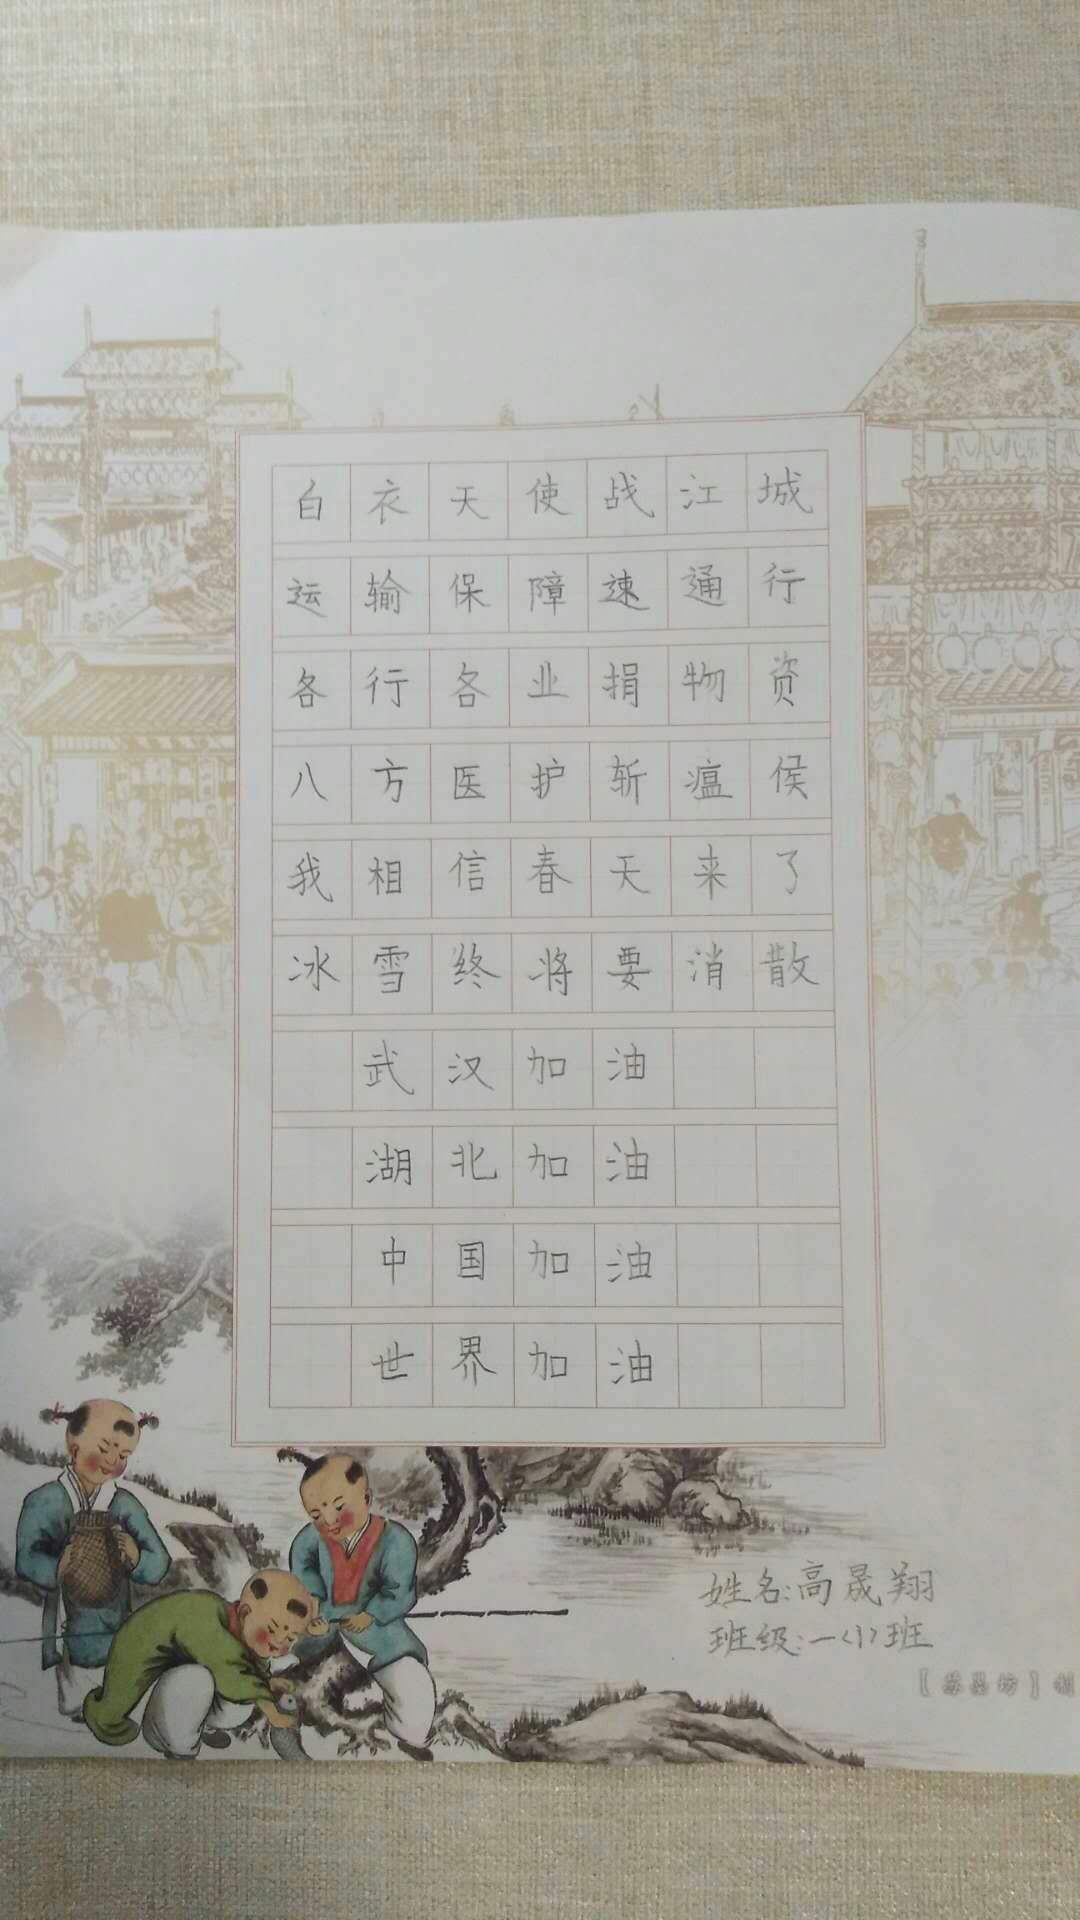 白衣天使战江城
运输保障速通行
各行各业捐物资
八方医护斩瘟侯
我相信春天来了
冰雪终将要消散
武汉加油
湖北加油
中国加油
世界加油
姓名:高晟翔
班级:一〈1〉班